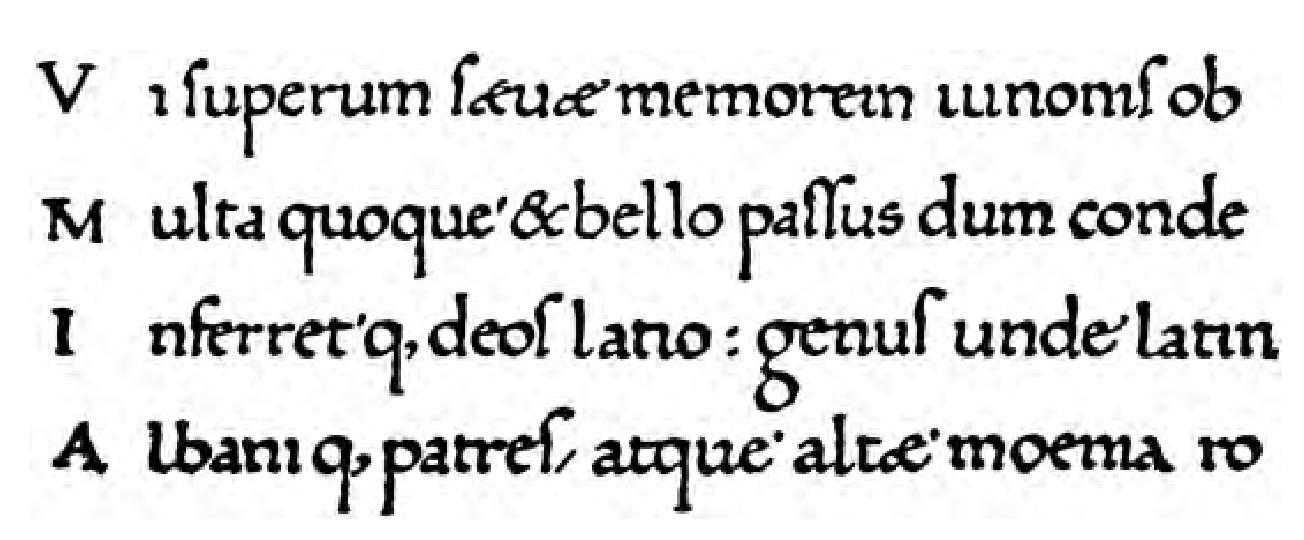 V ı ſuperum ſæuæ memorem ıunonıſ ob
M ulta quoque & bello paſſus dum conde
I nferret q, deoſ latıo : genuſ unde latın
A lbanı q, patreſ, atque altæ moenıa ro